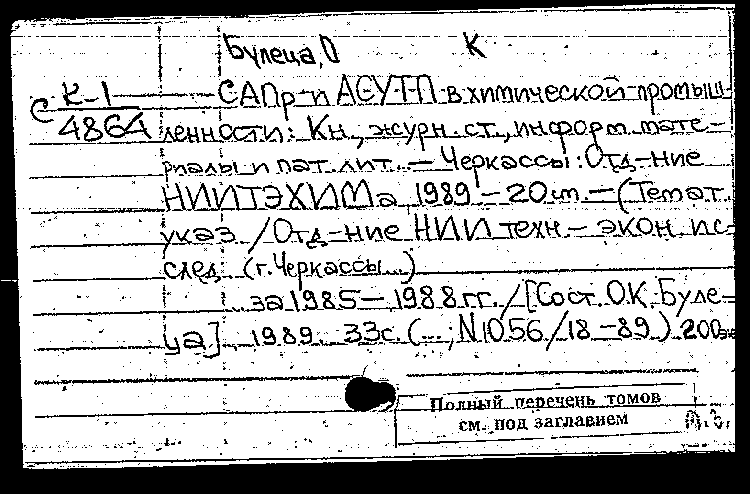 Булеца, О К
С К-1 САПр и АСУТП в химической промыш-
4864 ленности: Кн., журн. ст., информ. мате-
риалы и пат. лит. — Черкассы: Отд-ние
НИИТЭХИМа 1989 — 20 см. — (Темат.
указ. / Отд-ние НИИ техн.-экон. ис-
след. (г. Черкассы...)
за 1985 — 1988 гг. / [Сост. О.К. Буле-
ца] 1989. 33с. (...; N 1056/18-89) 200 эк
Полный перечень томов
см. под заглавием